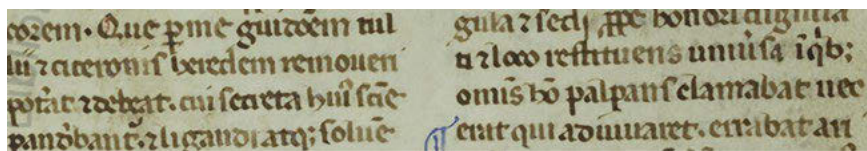 corem. Que ꝑ me guidoẽm tul
lii ⁊ ciceronis heredem remoueri
potẽat ⁊ debeat. cui secreta huiꝰ sciẽ
pandebant᷑. ⁊ ligandi atqꝫ soluẽ
gula ⁊ sedi honori
ti ⁊ loco restituens uniũsa ĩ qͥbꝫ
omĩs hõ palpans clamabat nec
erat qui adiuuaret. errabat